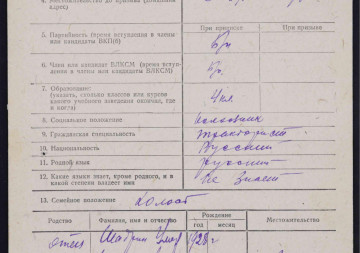 4. Местожительство до призыва (домашний
адрес)
При призыве
5. Партийность (время вступления в члены
или кандидаты ВКП(б)
б/п
6. Член или кандидат ВЛКСМ (время вступ-
ления в члены или кандидаты ВЛКСМ)
б/п.
7. Образование:
(указать, сколько классов или курсов
какого учебного заведения окончил, где
и когда)
4 кл.
8. Социальное положение колхозник
9. Гражданская специальность тракторист
10. Национальность Русский
11. Родной язык Русский
12. Какие языки знает, кроме родного, и в
какой степени владеет ими
не знает
13. Семейное положение холост
Родство Фамилия, имя и отчество Рождение Местожительство
год месяц
отец Шабрин